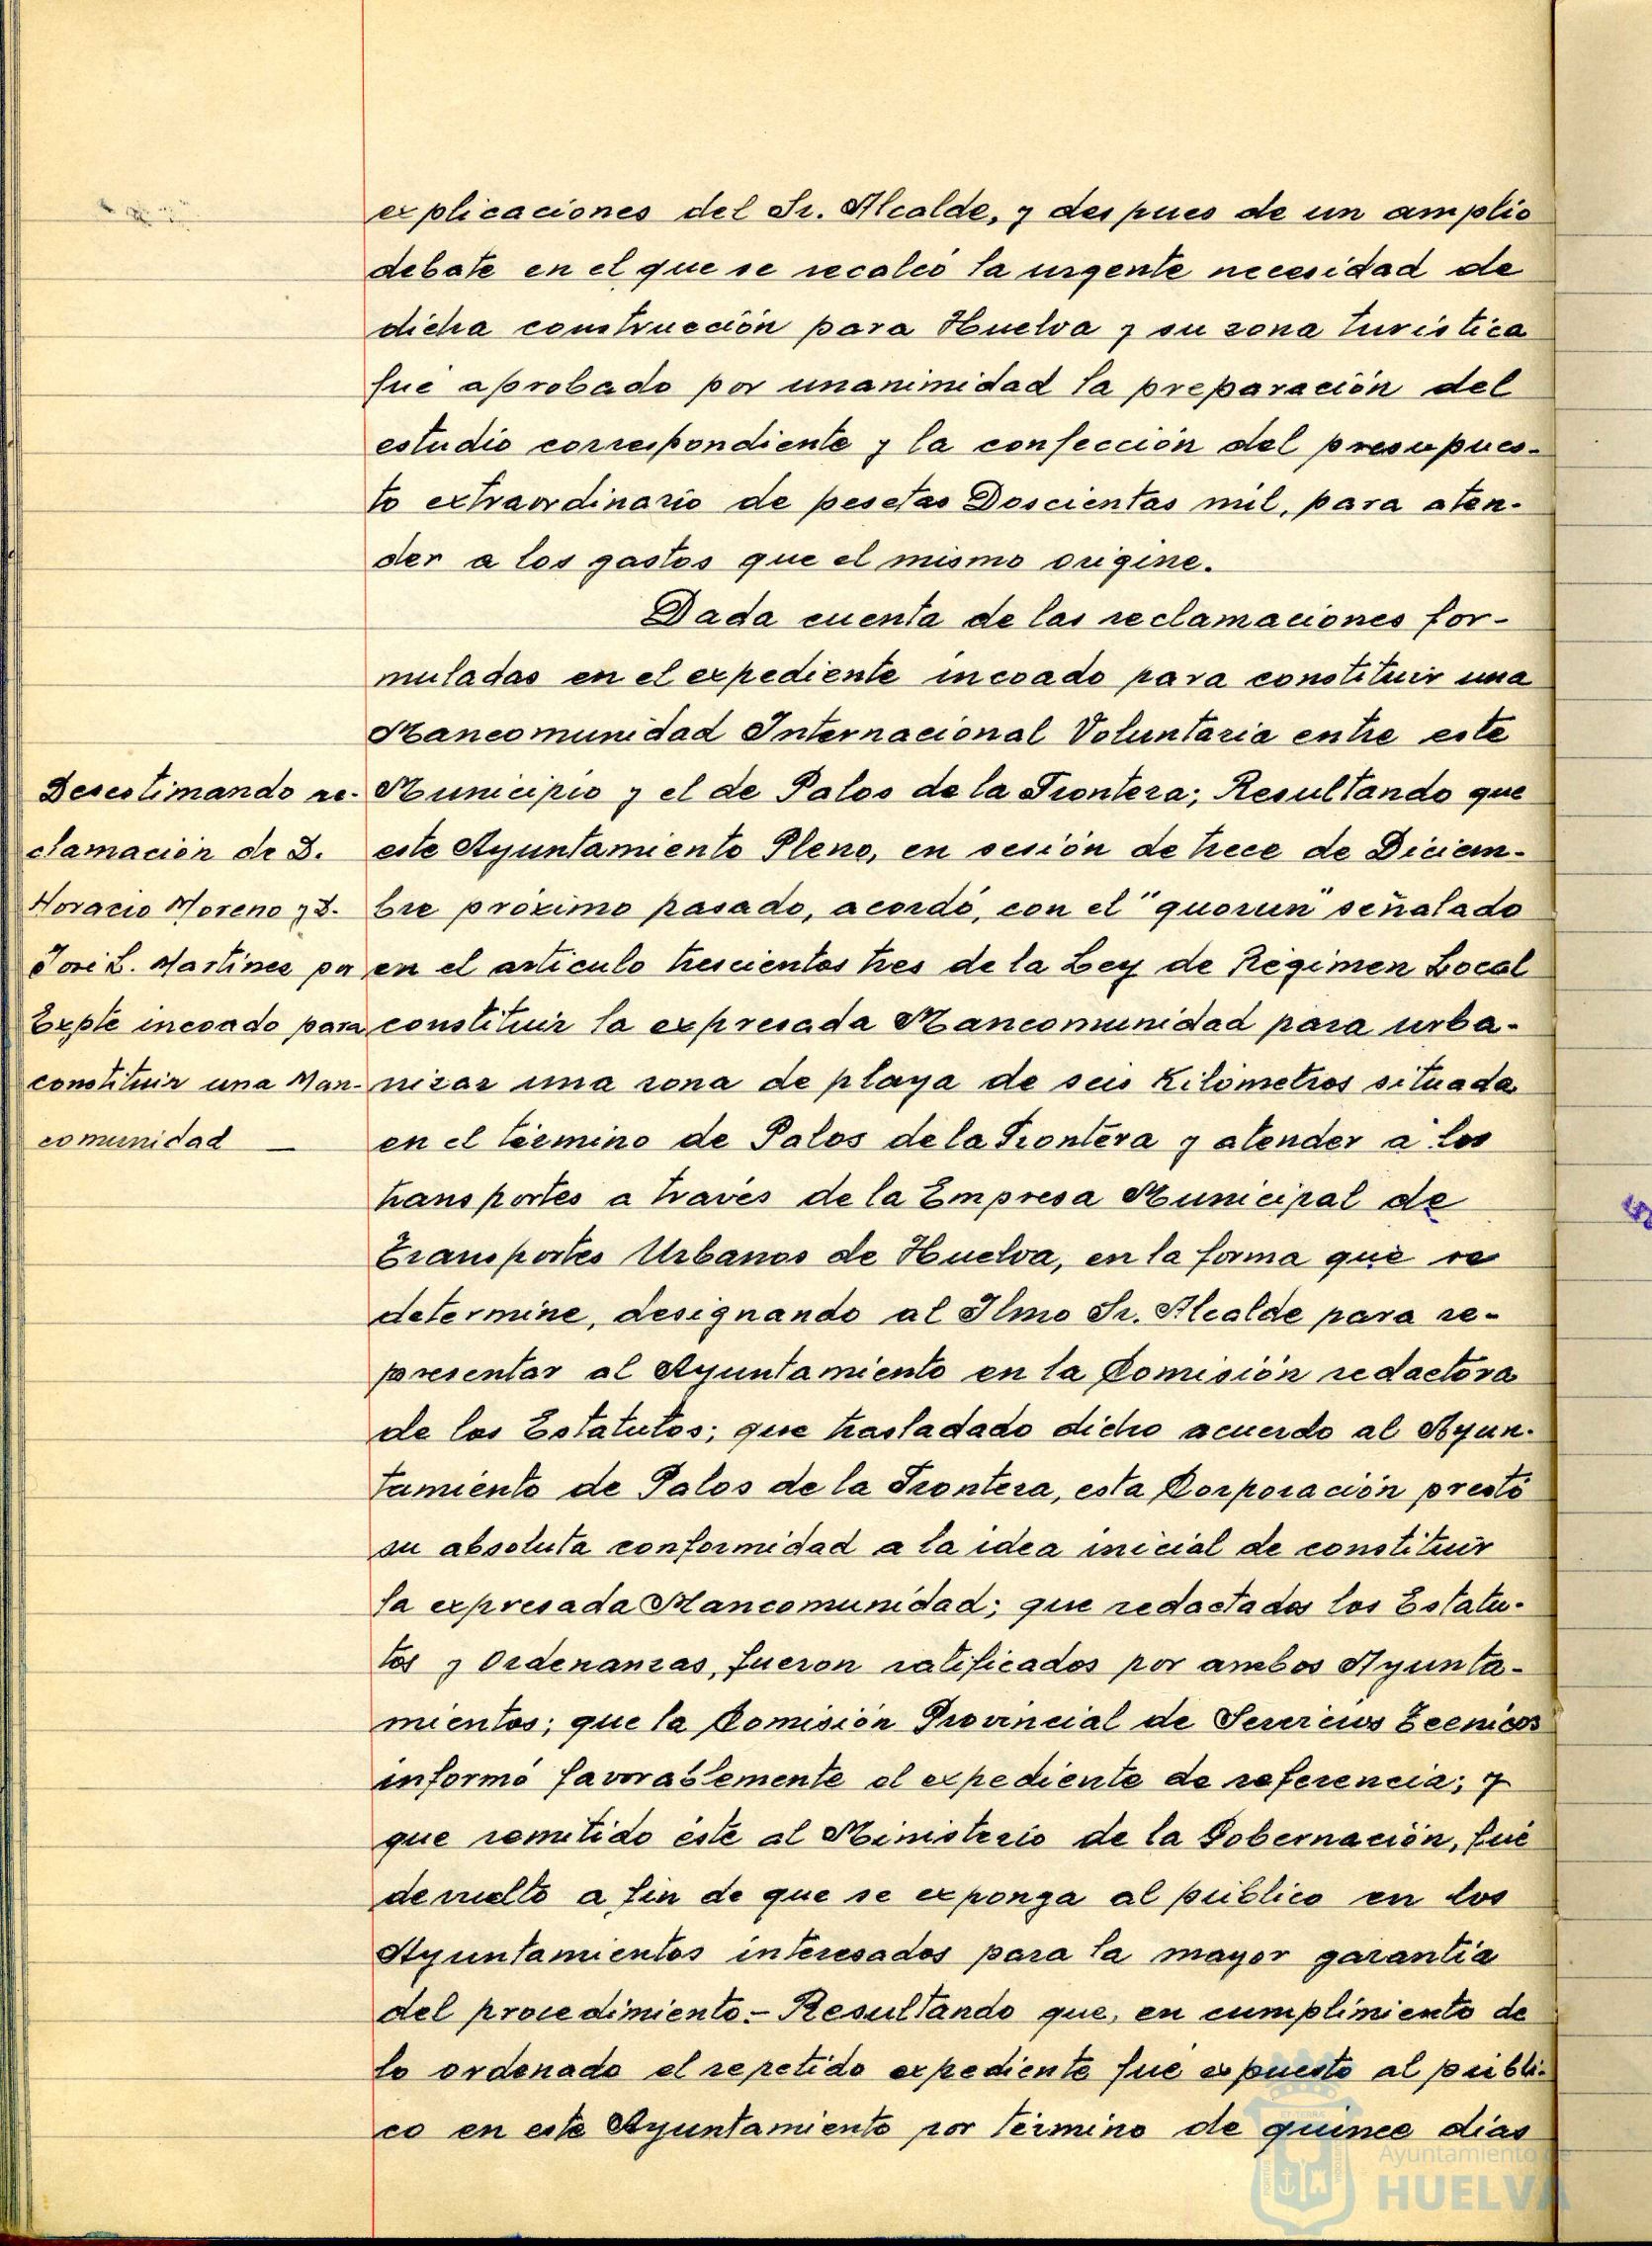 explicaciones del Sr. Alcalde, y despues de un amplio
debate en el que se recalcó la urgente necesidad de
dicha construcción para Huelva y su zona turistica
fué aprobado por unanimidad la preparación del
estudio correspondiente y la confección del presupues-
to extraordinario de pesetas Doscientas mil, para aten-
der a los gastos que el mismo origine.
Dada cuenta de las reclamaciones for-
muladas en el expediente incoado para constituir una
Mancomunidad Internacional Voluntaria entre este
Municipio y el de Palos de la Frontera; Resultando que
este Ayuntamiento Pleno, en sesión de trece de Diciem-
bre próximo pasado, acordó, con el "quorun" señalado
en el articulo trescientos tres de la Ley de Régimen Local
constituir la expresada Mancomunidad para urba-
nizar una zona de playa de seis Kilómetros situada
en el término de Palos de la Frontera y atender a los
transportes a través de la Empresa Municipal de
Transportes Urbanos de Huelva, en la forma que se
determine, designando al Ilmo Sr. Alcalde para re-
presentar al Ayuntamiento en la Comisión redactora
de los Estatutos; que trasladado dicho acuerdo al Ayun-
tamiento de Palos de la Frontera, esta Corporación prestó
su absoluta conformidad a la idea inicial de constituir
la expresada Mancomunidad; que redactados los Estatu-
tos y Ordenanzas, fueron ratificados por ambos Ayunta-
mientos; que la Comisión Provincial de Servicios Tecnicos
informó favorablemente el expediente de referencia; y
que remitido éste al Ministerio de la Gobernación, fué
devuelto a fin de que se exponga al público en los
Ayuntamientos interesados para la mayor garantía
del procedimiento.- Resultando que, en cumplimiento de
lo ordenado el repetido expediente fue expuesto al públi-
co en este Ayuntamiento por término de quince días
Desestimando re-
clamación de D.
Horacio Moreno y D.
José L. Martinez por
Expte incoado para
constituir una Man-
comunidad —
Ayuntamiento de
HUELVA